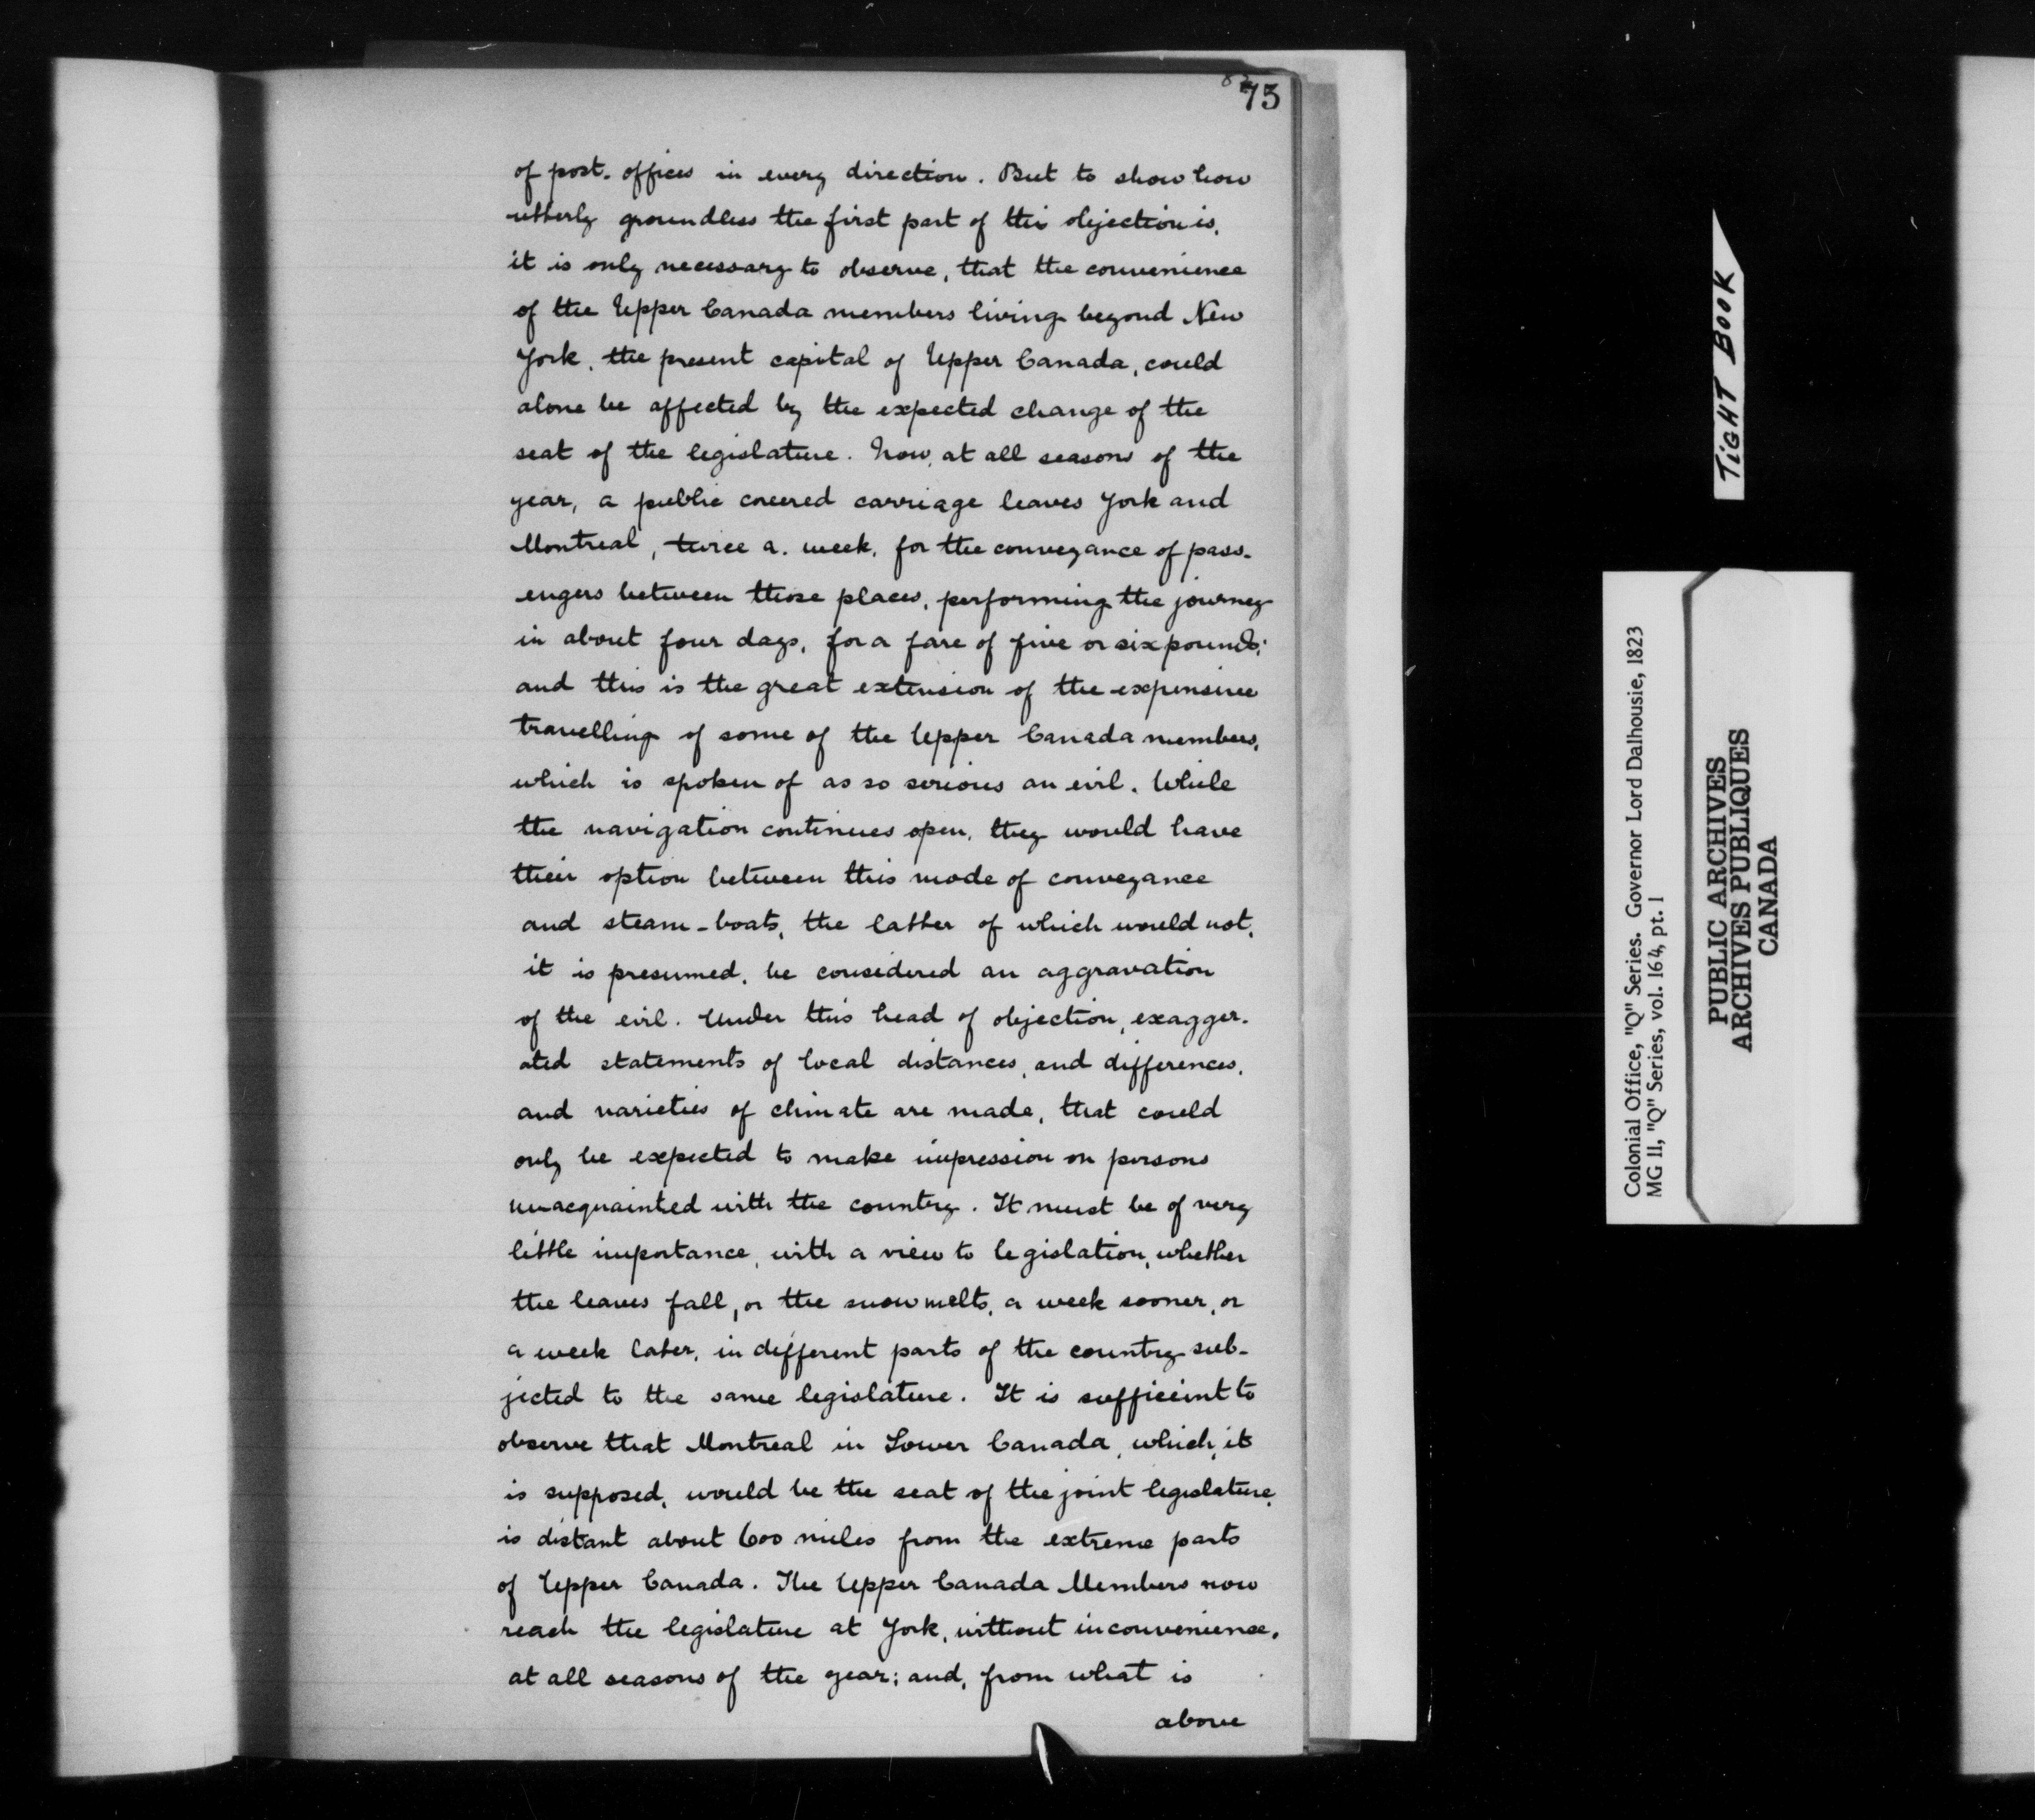 75
of post-offices in every direction. But to show how
utterly groundless the first part of this objection is,
it is only necessary to observe, that the convenience
of the Upper Canada members living beyond New
York, the present capital of Upper Canada, could
alone be affected by the expected change of the
seat of the legislature. Now, at all seasons of the
year, a public covered carriage leaves York and
Montreal, twice a week, for the conveyance of pass-
engers between those places, performing the journey
in about four days, for a fare of five or six pounds;
and this is the great extension of the expensive
travelling of some of the Upper Canada members,
which is spoken of as so serious an evil. While
the navigation continues open, they would have
their option between this mode of conveyance
and steam-boats, the latter of which would not,
it is presumed, be considered an aggravation
of the evil. Under this head of objection, exagger-
ated statements of local distances, and differences,
and varieties of climate are made, that could
only be expected to make impression on persons
unacquainted with the country. It must be of very
little importance, with a view to legislation, whether
the leaves fall, or the snow melts, a week sooner, or
a week later, in different parts of the country sub-
jected to the same legislature. It is sufficeint to
observe that Montreal in Lower Canada, which, it
is supposed, would be the seat of the joint legislature,
is distant about 600 miles from the extreme parts
of Upper Canada. The Upper Canada Members now
reach the legislature at York, without inconvenience,
at all seasons of the year; and, from what is
above
TIGHT BOOK
Colonial Office, "Q" Series. Governor Lord Dalhousie, 1823
MG 11, "Q" Series, vol. 164, pt. 1
PUBLIC ARCHIVES
ARCHIVES PUBLIQUES
CANADA